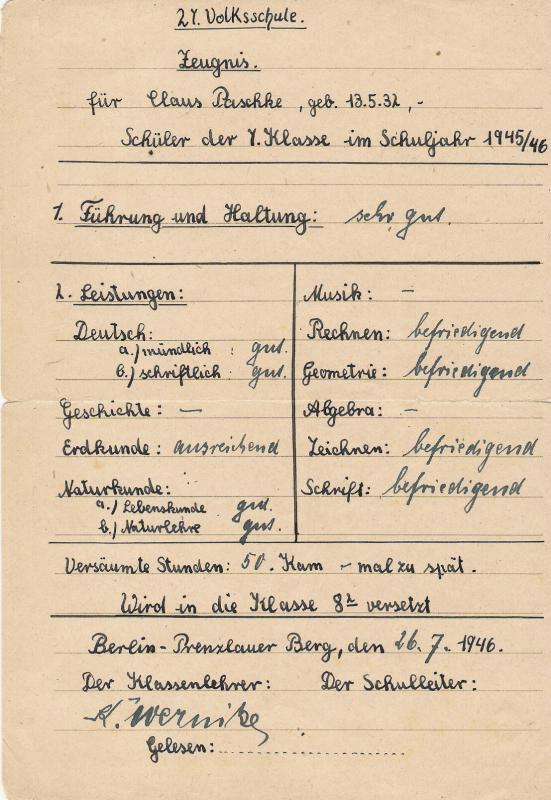 27. Volksschule.
Zeugnis.
für Claus Paschke, geb. 13.5.32, -
Schüler der 7. Klasse im Schuljahr 1945/46
1. Führung und Haltung: sehr gut.
2. Leistungen:
Deutsch:
a.) mündlich : gut.
b.) schriftlich : gut.
Geschichte: —
Erdkunde: ausreichend
Naturkunde:
a.) Lebenskunde gut.
b.) Naturlehre gut.
Musik: —
Rechnen: befriedigend
Geometrie: befriedigend
Algebra: —
Zeichnen: befriedigend
Schrift: befriedigend
Versäumte Stunden: 50. Kam - mal zu spät.
Wird in die Klasse 8 versetzt
Berlin-Prenzlauer Berg, den 26.7.1946.
Der Klassenlehrer: Der Schulleiter:
K. Wernike
Gelesen: ........................